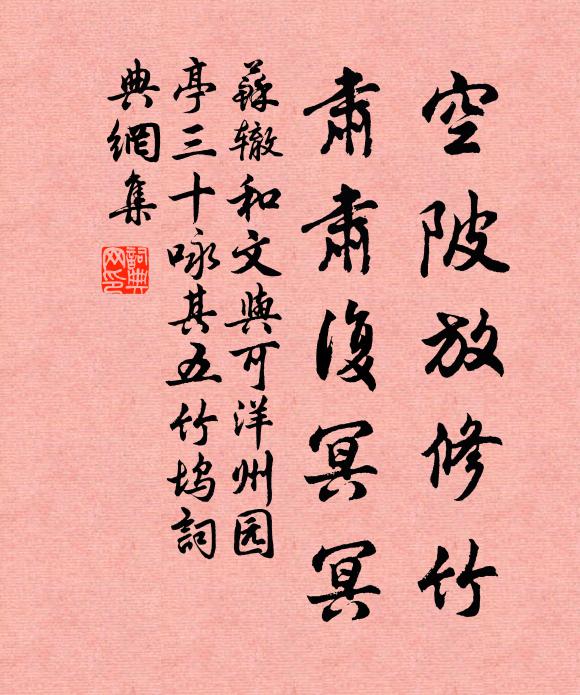 空陂放修竹
肅肅復冥冥
蘇辙和文與可洋州园
亭三十咏其五竹坞詞
典網集
詞典網印